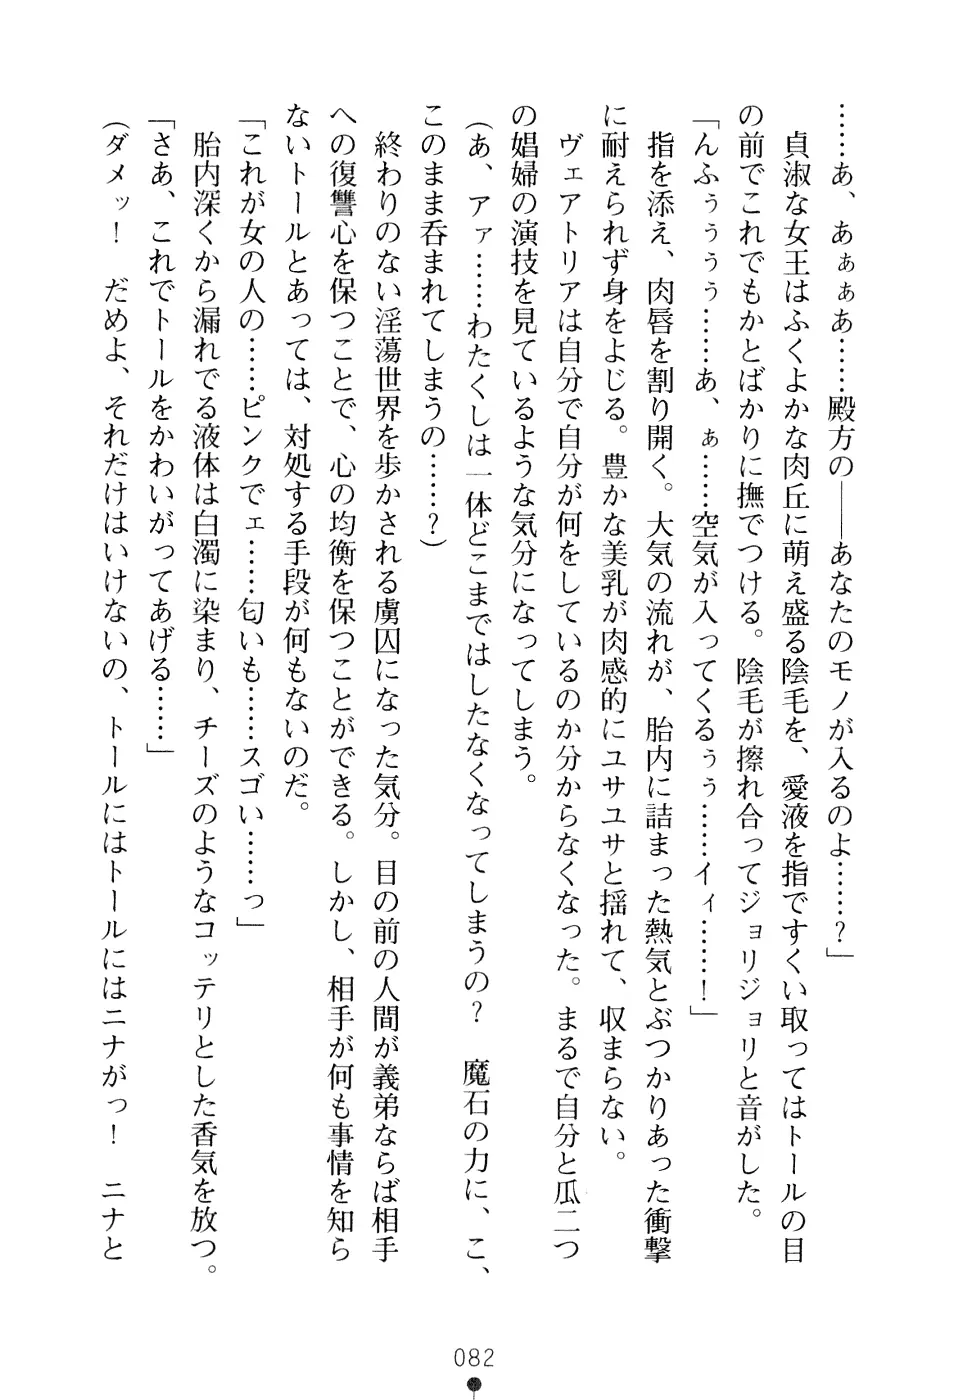 ……あ、あぁぁあ……殿方の――あなたのモノが入るのよ……？」
　貞淑な女王はふくよかな肉丘に萌え盛る陰毛を、愛液を指ですくい取ってはトールの目
の前でこれでもかとばかりに撫でつける。陰毛が擦れ合ってジョリジョリと音がした。
「んふぅぅぅぅ……あ、ぁ……空気が入ってくるぅぅ……イィ……！」
　指を添え、肉唇を割り開く。大気の流れが、胎内に詰まった熱気とぶつかりあった衝撃
に耐えられず身をよじる。豊かな美乳が肉感的にユサユサと揺れて、収まらない。
　ヴェアトリアは自分で自分が何をしているのか分からなくなった。まるで自分と瓜二つ
の娼婦の演技を見ているような気分になってしまう。
（あ、アァ……わたくしは一体どこまではしたなくなってしまうの？　魔石の力に、こ、
このまま呑まれてしまうの……？）
　終わりのない淫蕩世界を歩かされる虜囚になった気分。目の前の人間が義弟ならば相手
への復讐心を保つことで、心の均衡を保つことができる。しかし、相手が何も事情を知ら
ないトールとあっては、対処する手段が何もないのだ。
「これが女の人の……ピンクでェ……匂いも……スゴい……っ」
　胎内深くから漏れでる液体は白濁に染まり、チーズのようなコッテリとした香気を放つ。
「さあ、これでトールをかわいがってあげる……」
（ダメッ！　だめよ、それだけはいけないの、トールにはトールにはニナがっ！　ニナと
082